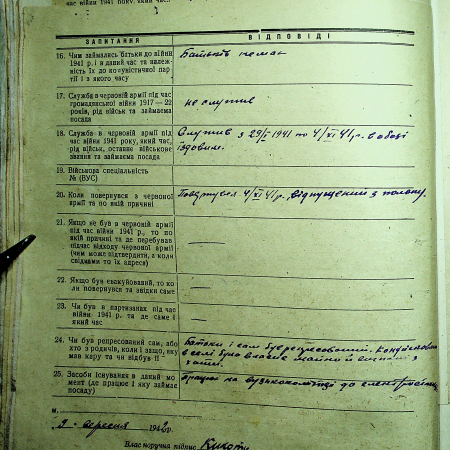 війни 1941 року
ЗАПИТАННЯ ВІДПОВІДІ
16. Чим займались батьки до війни
1941 р. і в даний час та належ-
ність їх до комуністичної пар-
тії і з якого часу
Батьків немає
17. Служба в червоній армії під час
громадянської війни 1917—22
років, рід військ та займаєма
посада
не служив
18. Служба в червоній армії під
час війни 1941 року, який час,
рід військ, останнє військове
звання та займаєма посада
Служив з 1941 по 4/XI 41 р. в обозі
їздовим.
19. Військова спеціальність
№ (ВУС)
20. Коли повернувся з червоної
армії та по якій причині
Повернувся 4/XI 41 р. відпущений з полону.
21. Якщо не був в червоній армії
під час війни 1941 р., то по
якій причині та де перебував
підчас відходу червоної армії
(чим може підтвердити, а коли
свідками то їх адреса)
22. Якщо був евакуйований, то ко-
ли повернувся та звідки саме
23. Чи був в партизанах під час
війни 1941 р. та де саме і
який час
24. Чи був репресований сам, або
хто з родичів, коли і защо, яку
мав кару та чи відбув її
Батьки і сам був репресований.
в селі було
25. Засоби існування в даний мо-
мент (де працює і яку займає
посаду)
Працює на вузькоколійці до
м.
9 вересня 1942 р.
Власноручня підпис